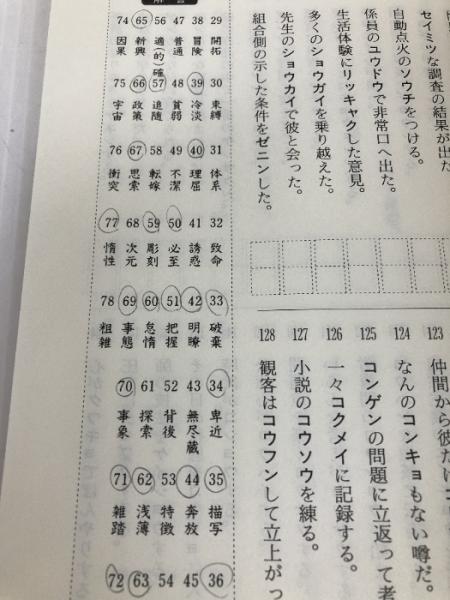 セイミツな調査の結果が出た
自動点火のソウチをつける。
係員のユウドウで非常口へ出た。
生活体験にリッキャクした意見。
多くのショウガイを乗り越えた。
先生のショウカイで彼と会った。
組合側の示した条件をゼニンした。
123 仲間から彼だけ
124 なんのコンキョもない噂だ。
125 コンゲンの問題に立返って考
126 一々コクメイに記録する。
127 小説のコウソウを練る。
128 観客はコウフンして立上がっ
29 開拓
30 束縛
31 体系
32 致命
33 破棄
34 卑近
35 描写
36
38 冒険
39 冷淡
40 理屈
41 誘惑
42 明瞭
43 無尽蔵
44 奔放
45
47 普通
48 貧弱
49 不潔
50 必至
51 把握
52 背後
53 特徴
54
56 適(的)確
57 追随
58 転嫁
59 彫刻
60 怠惰
61 探索
62 浅薄
63
65 新興
66 政策
67 思索
68 次元
69 事態
70 事象
71 雑踏
72
74 因果
75 宇宙
76 衝突
77 惰性
78 粗雑